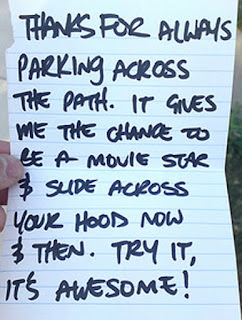 THANKS FOR ALWAYS
PARKING ACROSS
THE PATH. IT GIVES
ME THE CHANCE TO
BE A MOVIE STAR
& SLIDE ACROSS
YOUR HOOD NOW
& THEN. TRY IT,
IT'S AWESOME!